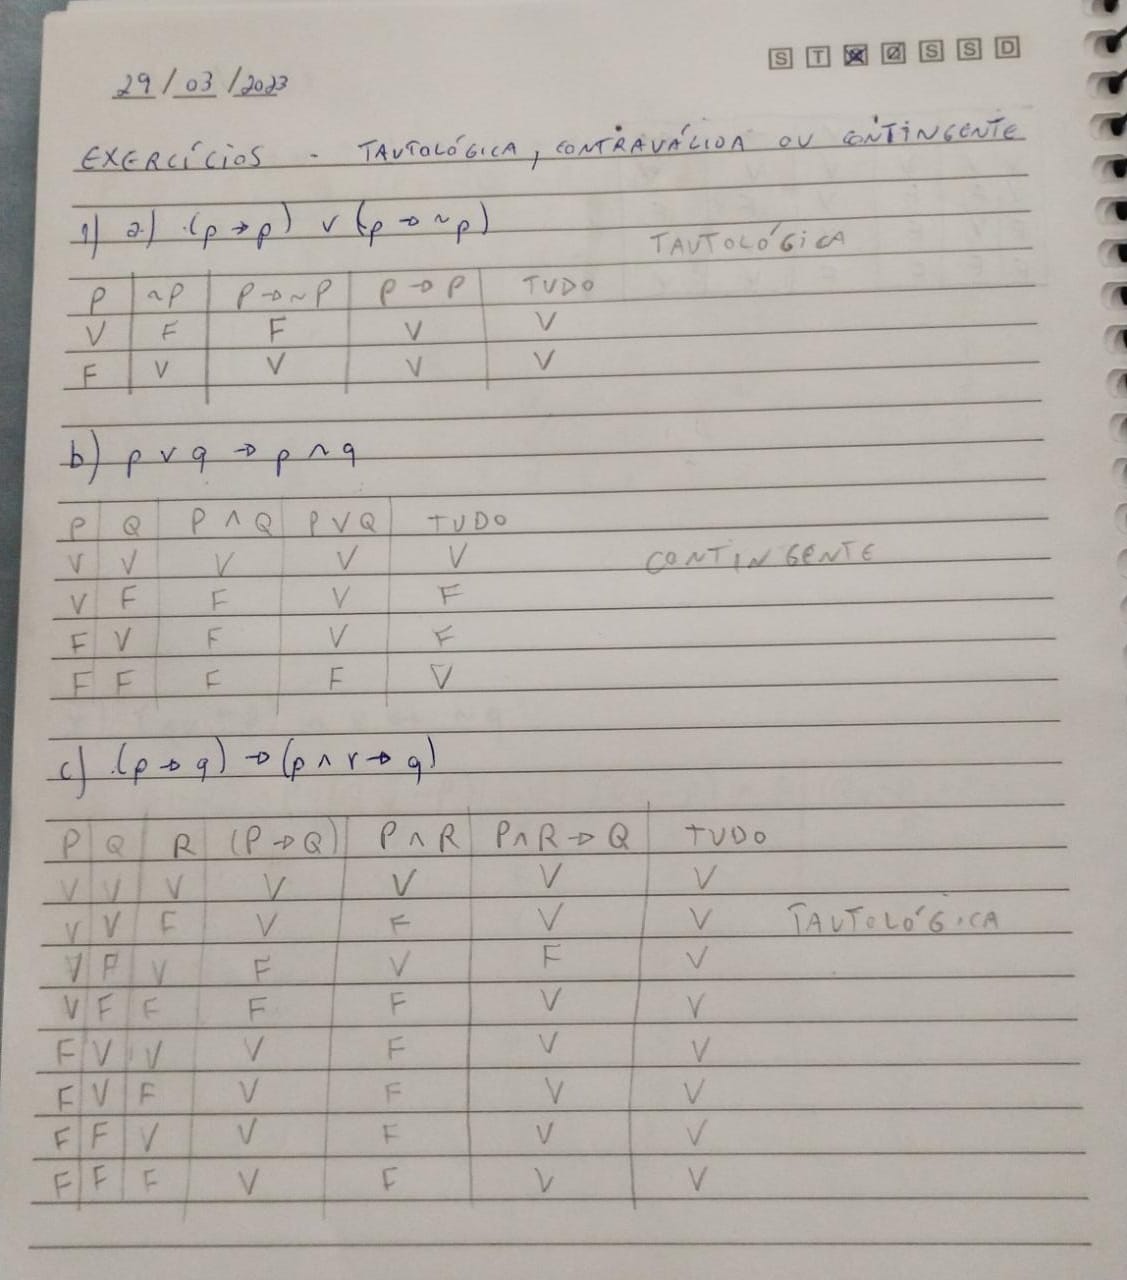 S T Q Q S S D
29/03/2023
EXERCÍCIOS - TAUTOLÓGICA, CONTRAVÁLIDA OU CONTINGENTE
1) a) (p → p) ∨ (p → ~p)
TAUTOLÓGICA
P ~P P → ~P P → P TUDO
V F F V V
F V V V V
b) p ∨ q → p ∧ q
P Q P ∧ Q P ∨ Q TUDO
V V V V V
CONTINGENTE
V F F V F
F V F V F
F F F F V
c) (p → q) → (p ∧ r → q)
P Q R (P → Q) P ∧ R P ∧ R → Q TUDO
V V V V V V V
V V F V F V V TAUTOLÓGICA
V F V F V F V
V F F F F V V
F V V V F V V
F V F V F V V
F F V V F V V
F F F V F V V